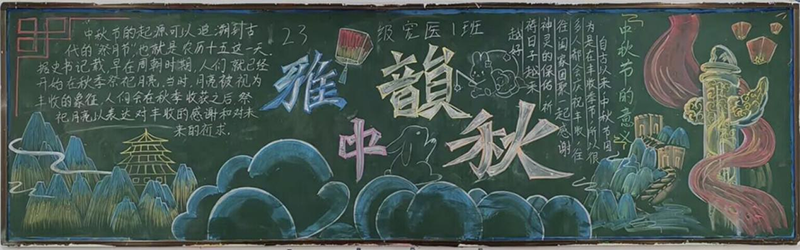 中秋节的起源可以追溯到古
代的“祭月节”也就是农历十五这一天,
据史书记载,早在周朝时期,人们就已经
开始在秋季祭祀月亮,当时,月亮被视为
丰收的象征,人们会在秋季收获之后祭
祀月亮以表达对丰收的感谢和对未
来的祈求.
23级宠医1班
雅韻
中秋
「中秋节的意义」
自古以来中秋节因
为是在丰收季节,所以很
多人都会庆祝丰收,往
往阖家团聚一起感谢
神灵的保佑,祈
祷日子越来
越好.